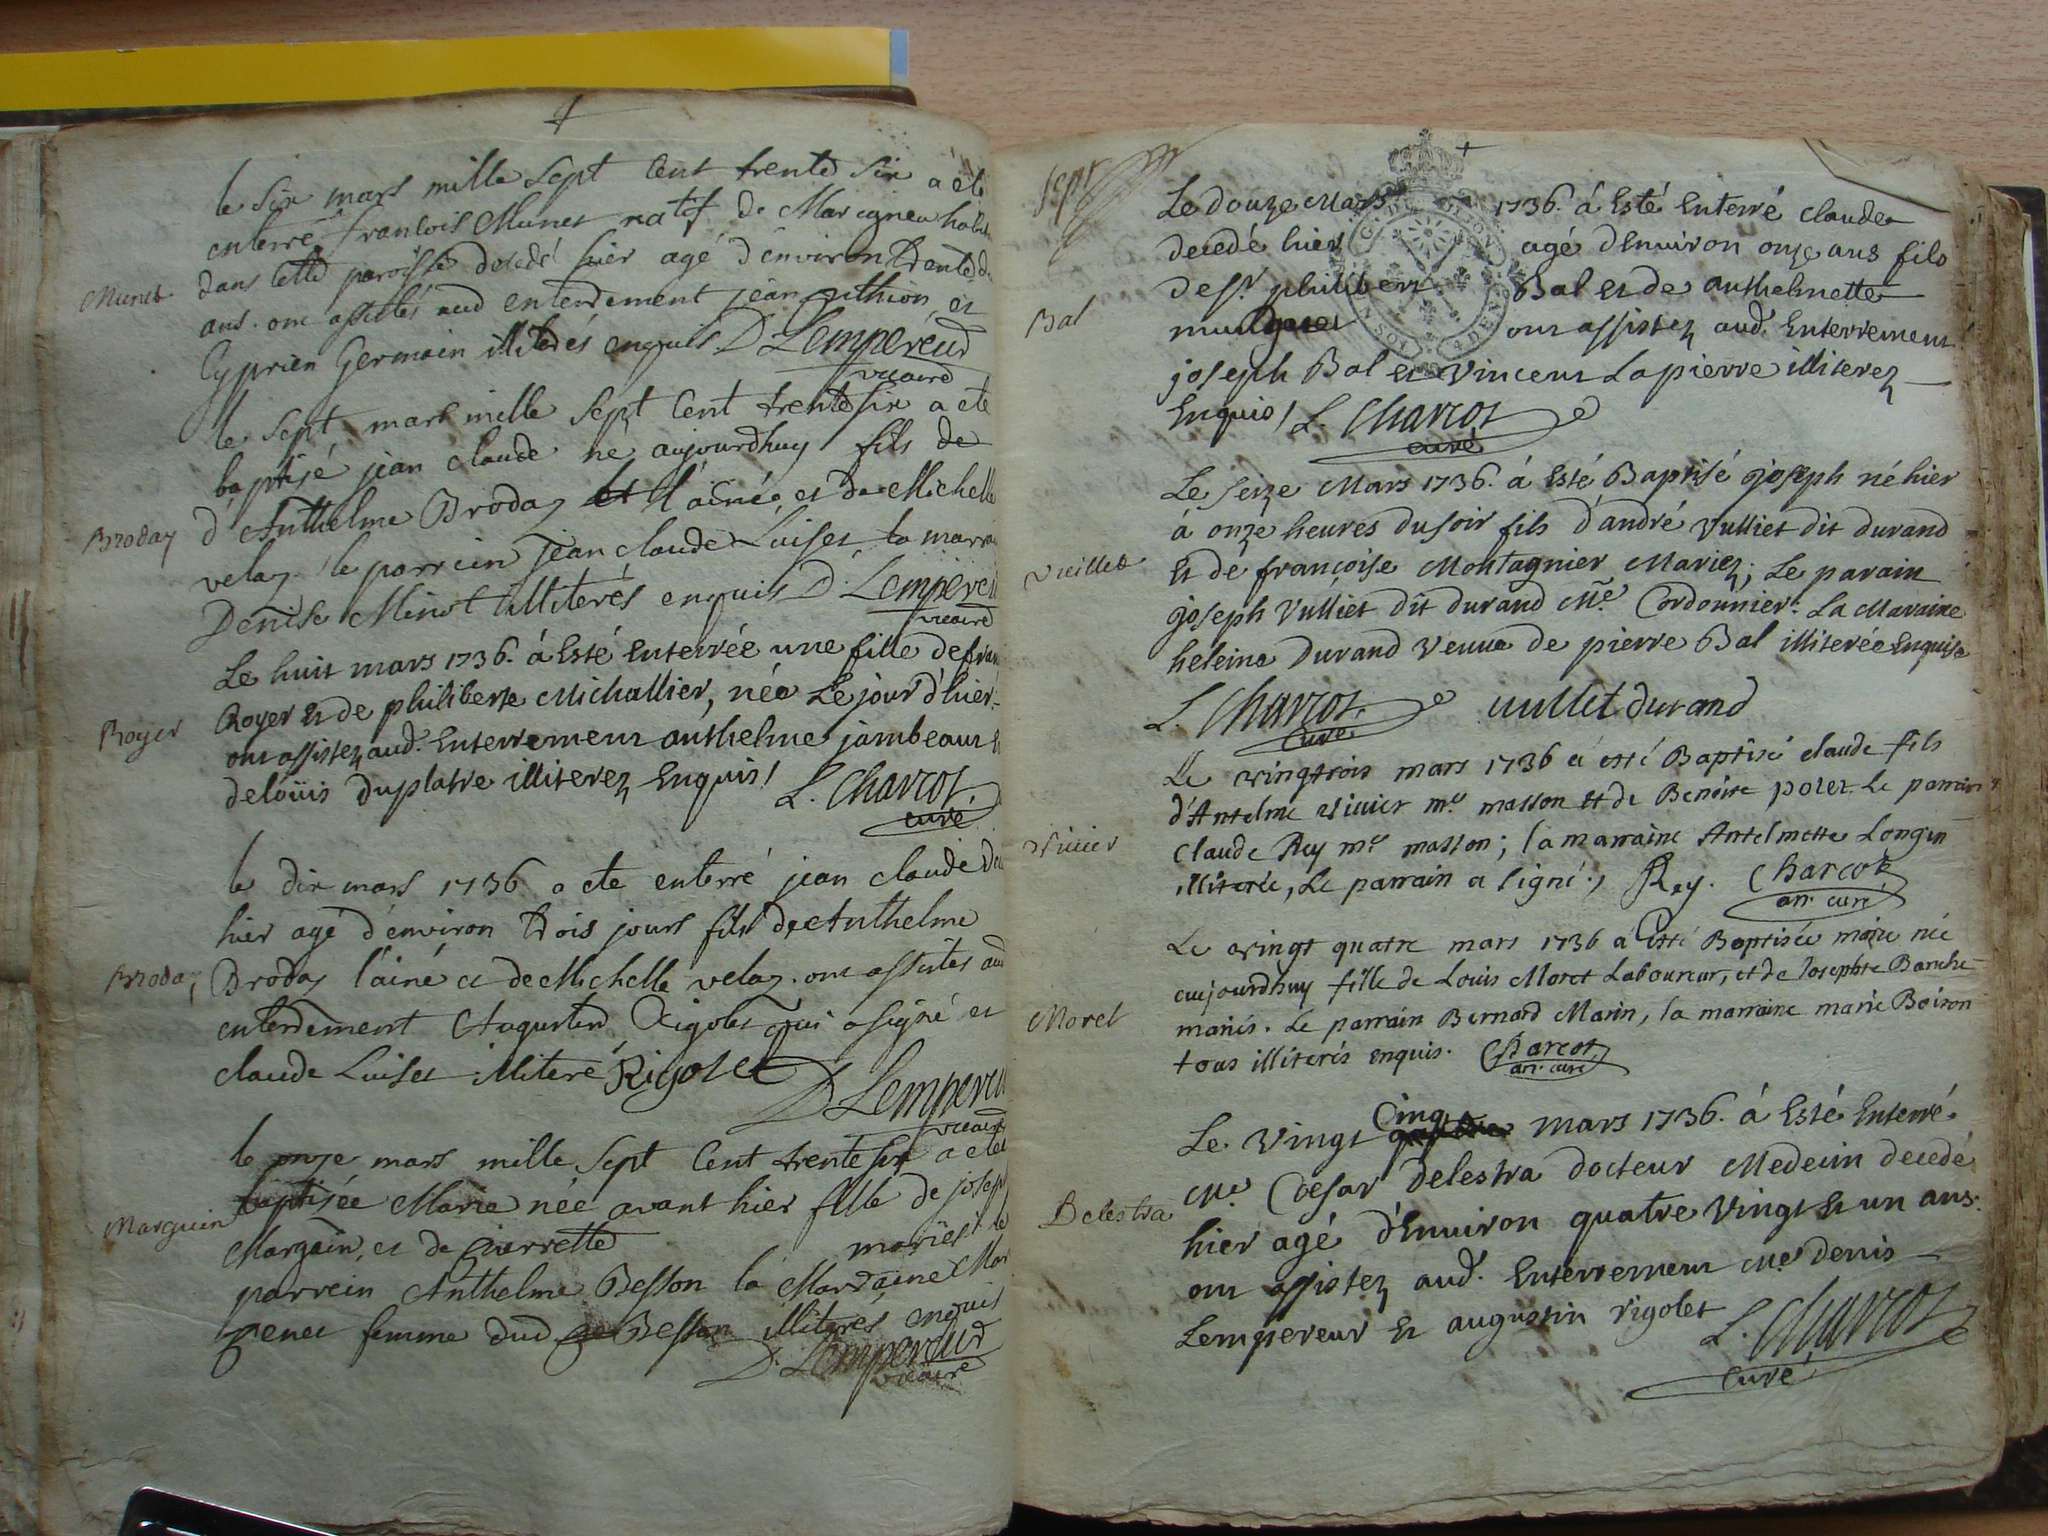 le six mars mille sept cent trente six a ete
enterré francois Munet natif de Marignieu habit
Munet
dans cette paroisse decedé hier agé d'environ trente
ans. ont assistés aud enterrement jean et
Cyprien Germain illiterés enquis D Lempereur
vicaire
le sept mars mille sept cent trente six a ete
baptisé jean claude né aujourdhuy fils de
Broday
d'Anthelme Broday et l'ainé, et de Michelle
velay. le parrein jean claude Luiset la marra
Denise Minot illiterés enquis D. Lempereu
vicaire
Le huit mars 1736. á Esté Enterrée une fille de fran
Royer
Royer Et de philiberte Michallier, née Le jour d'hier.
ont assistez aud. Enterrement anthelme jambeaut Et
deloüis duplatre illiterez Enquis / L. Charcot,
curé
le dix mars 1736 a ete enterré jean claude de
hier agé d'environ trois jours fils de Anthelme
Broday
Broday l'ainé et de Michelle velay. ont assistés aud
enterdement Augustin Rigolet qui a signé et
claude Luiset illiteré Rigolet
D Lempereu
vicaire
le onze mars mille sept cent trente six a ete
baptisée Marie née avant hier fille de josep
Marguin
Margain, et de Pierrette mariés le
parrein Anthelme Besson la Marraine Mar
Genet femme dud Besson illiterés enquis
D. Lempereur
vicaire
Le douze Mars 1736. á Esté Enterré claude
decedé hier agé d'Environ onze ans fils
de sr. philibert Bal et de anthelmette
Bal
ont assistez aud. Enterrement
joseph Bal et vincent Lapierre illiterez
Enquis / L. Charcot
curé
Le seize Mars 1736. á Esté Baptisé joseph né hier
á onze heures du soir fils d'andré vulliet dit durand
Vieillet
Et de françoise Montagnier Mariez; Le parain
joseph Vulliet dit durand Me. Cordonnier. La Maraine
heleine durand Veuve de pierre Bal illiterée Enquise
L. Charcot, uulliet durand
curé
Le vingtrois mars 1736 á esté Baptisé claude fils
d'Antelme vivier me masson et de Benoite poret. Le parrain
Vivier
Claude Rey me masson; la marraine Antelmette Longin
illiterée, Le parrain a signé., Rey. Charcot
arr. curé
Le vingt quatre mars 1736 á Esté Baptisée marie née
aujourdhuy fille de Louis Moret Laboureur, et de Josephte Baruche
Moret
mariés. Le parrain Bernard Marin, la marraine marie Boiron
tous illiterés enquis. Charcot,
arr. curé
Cinq
Le vingt quatre mars 1736. á Esté Enterré
Me. Cesar Delestra docteur Medecin decedé
Delestra
hier agé d'Environ quatre Vingt Et un ans.
ont assistez aud. Enterrement Me. denis
Lempereur Et augustin rigolet L. Charcot
curé